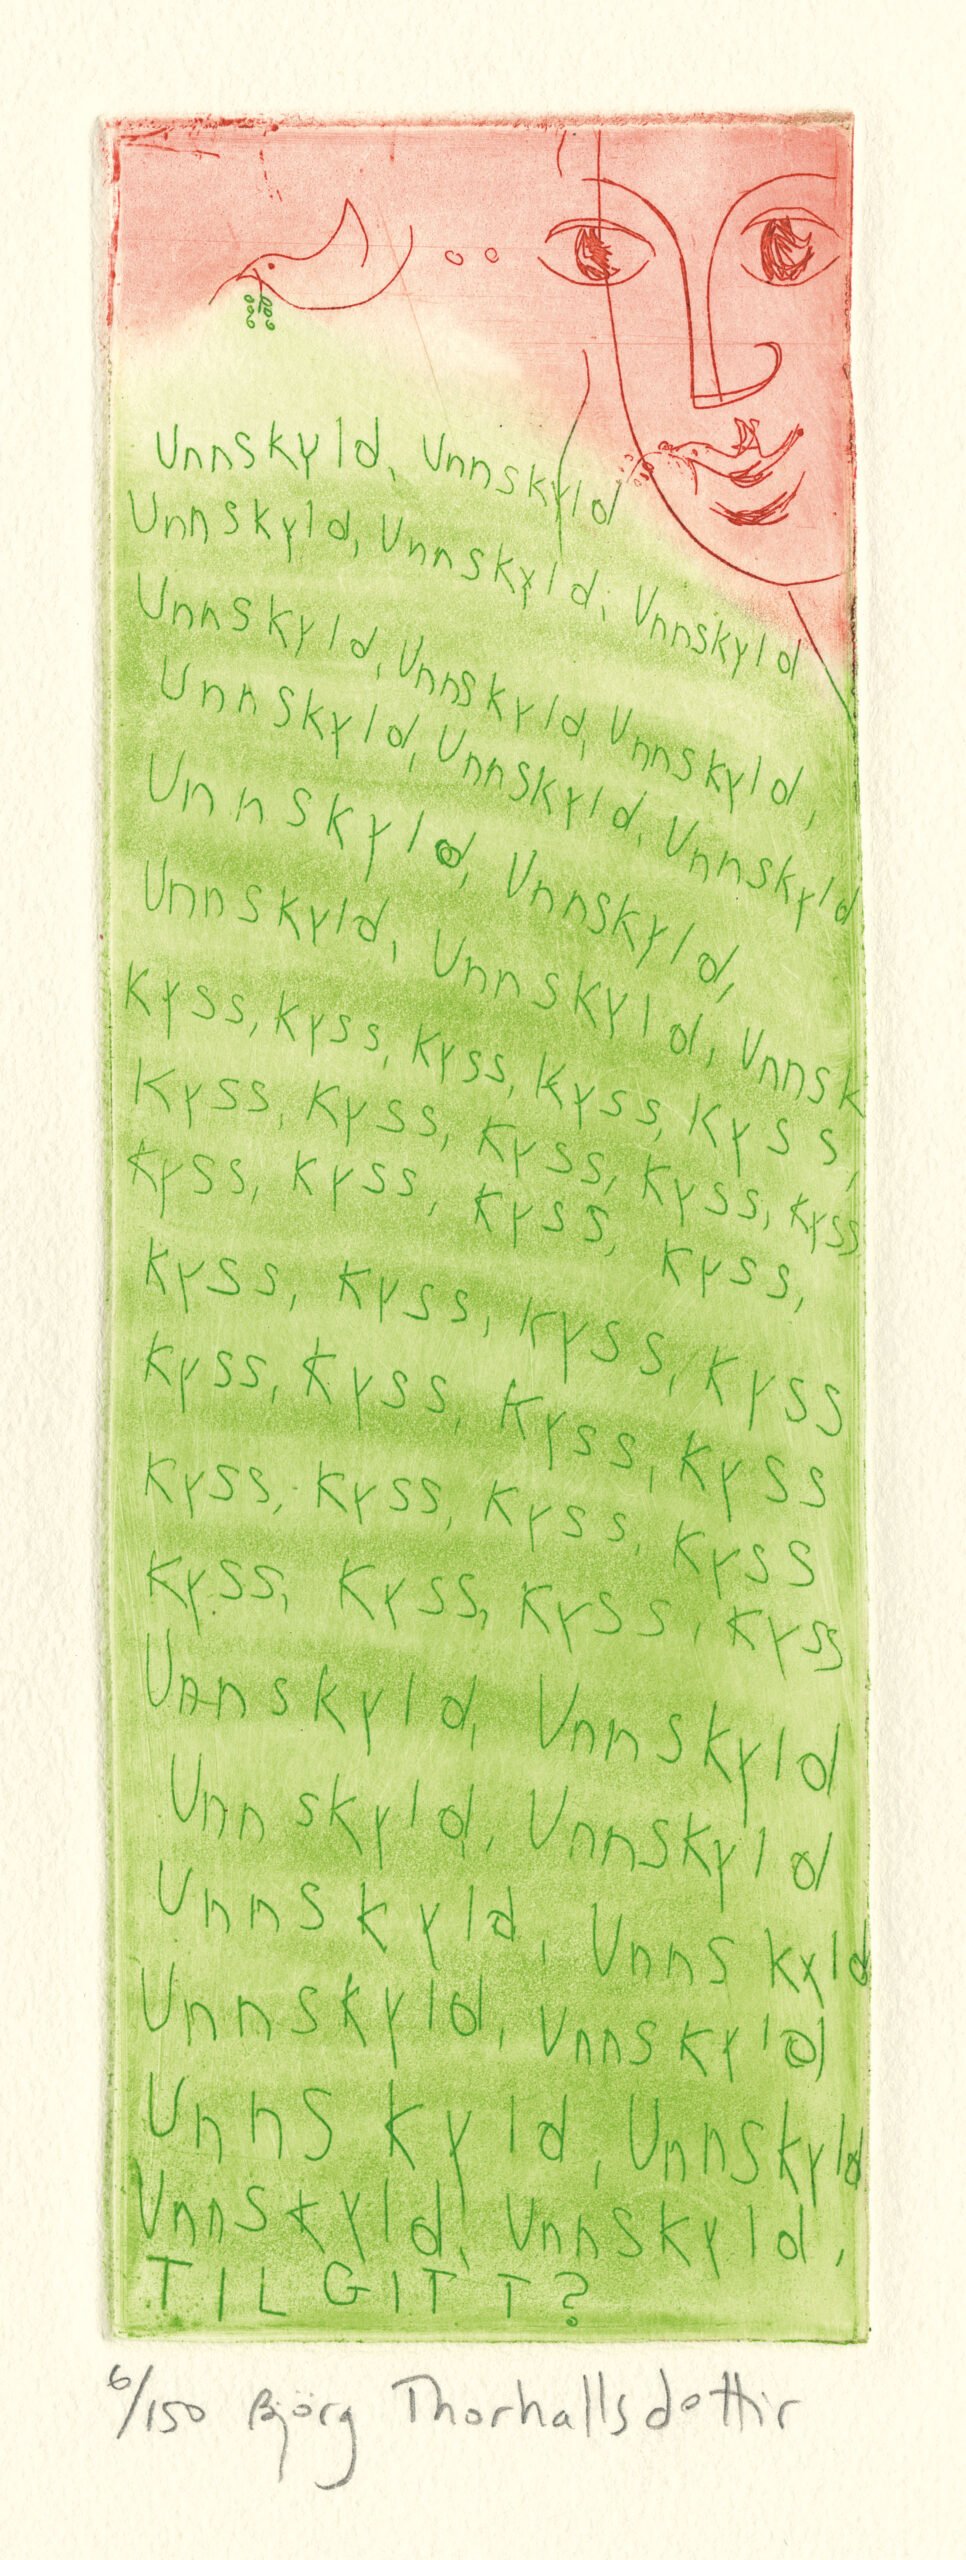 Unnskyld, Unnskyld
Unnskyld, Unnskyld, Unnskyld
Unnskyld, Unnskyld, Unnskyld,
Unnskyld, Unnskyld, Unnskyld
Unnskyld, Unnskyld,
Unnskyld, Unnskyld, Unnsk
Kyss, Kyss, Kyss, Kyss, Kyss,
Kyss, Kyss, Kyss, Kyss, Kyss
Kyss, Kyss, Kyss, Kyss,
Kyss, Kyss, Kyss, Kyss
Kyss, Kyss, Kyss, Kyss
Kyss, Kyss, Kyss, Kyss
Kyss, Kyss, Kyss, Kyss
Unnskyld, Unnskyld
Unnskyld, Unnskyld
Unnskyld, Unnskyld
Unnskyld, Unnskyld
Unnskyld, Unnskyld
Unnskyld, Unnskyld,
TILGITT?
6/150 Björg Thorhallsdottir